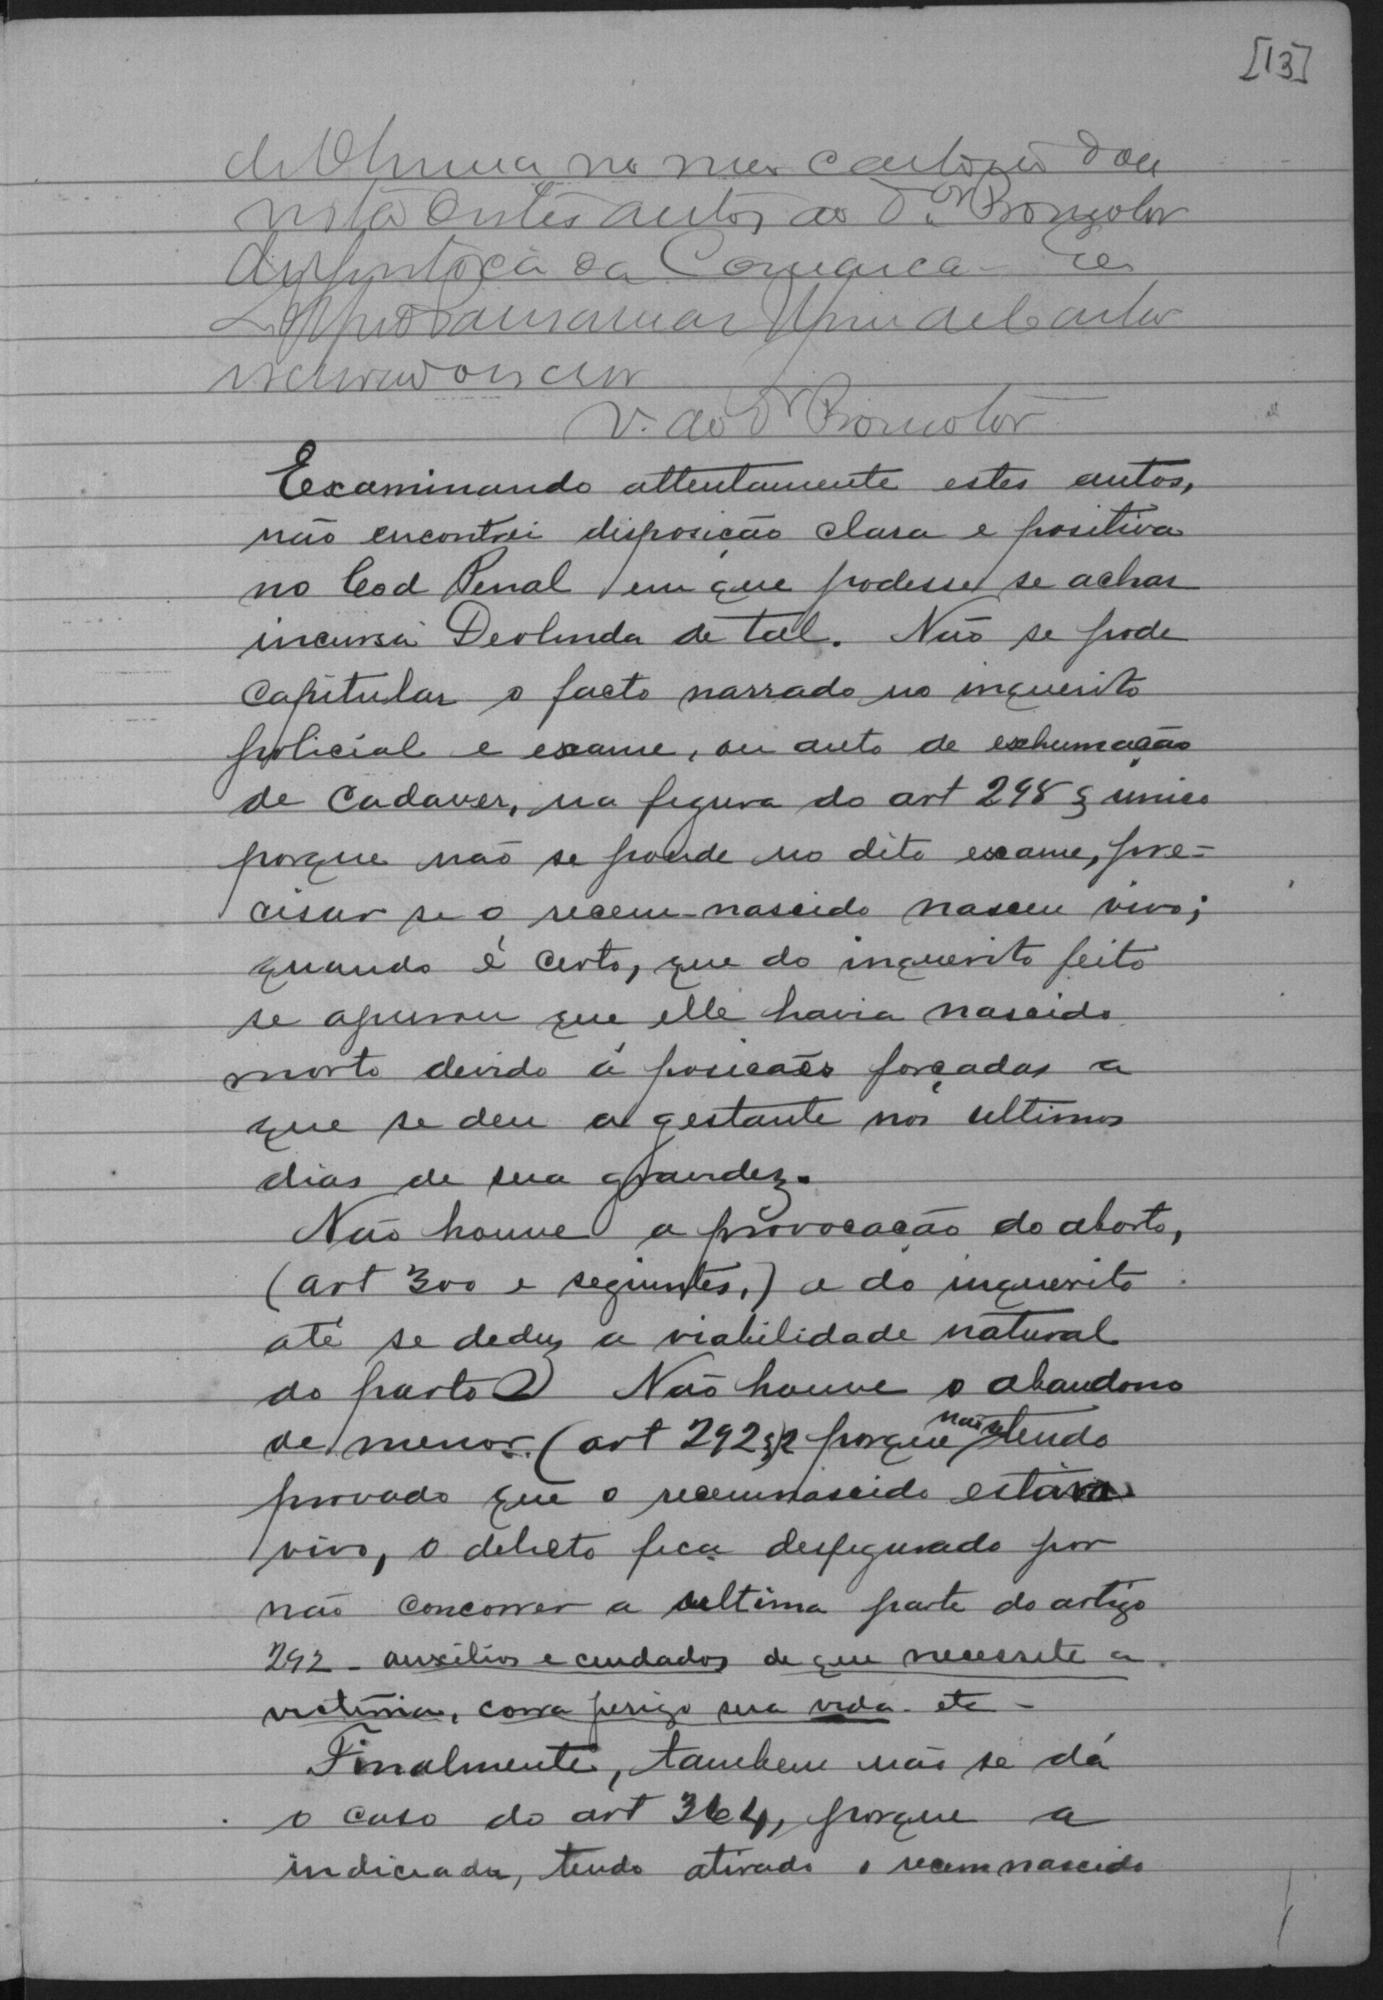 [13]
no meu cartorio dou
vista destes autos ao Dr. Promotor
da Comarca
V. ao Dr Promotor
Examinando attentamente estes autos,
não encontrei disposição clara e positiva
no Cod Penal em que podesse se achar
incursa Deolinda de tal. Não se pode
capitular o facto narrado no inquerito
policial e exame, ou auto de exhumação
de cadaver, na figura do art 298 § unico
porque não se poude no dito exame, pre=
cisar se o recem-nascido nasceu vivo;
quando é certo, que do inquerito feito
se apurou que elle havia nascido
morto devido á posições forçadas a
que se deu a gestante nos ultimos
dias de sua gravidez.
Não houve a provocação do aborto,
(art 300 e seguintes,) e do inquerito
até se deduz a viabilidade natural
do parto. Não houve o abandono
de menor (art 292 § 2 porque não se tendo
provado que o recemnascido estava
vivo, o delicto fica desfigurado por
não concorrer a ultima parte do artigo
292 - auxilios e cuidados de que necessite a
victima, corra perigo sua vida - etc -
Finalmente, tambem não se dá
o caso do art 364, porque a
indiciada, tendo atirado o recemnascido